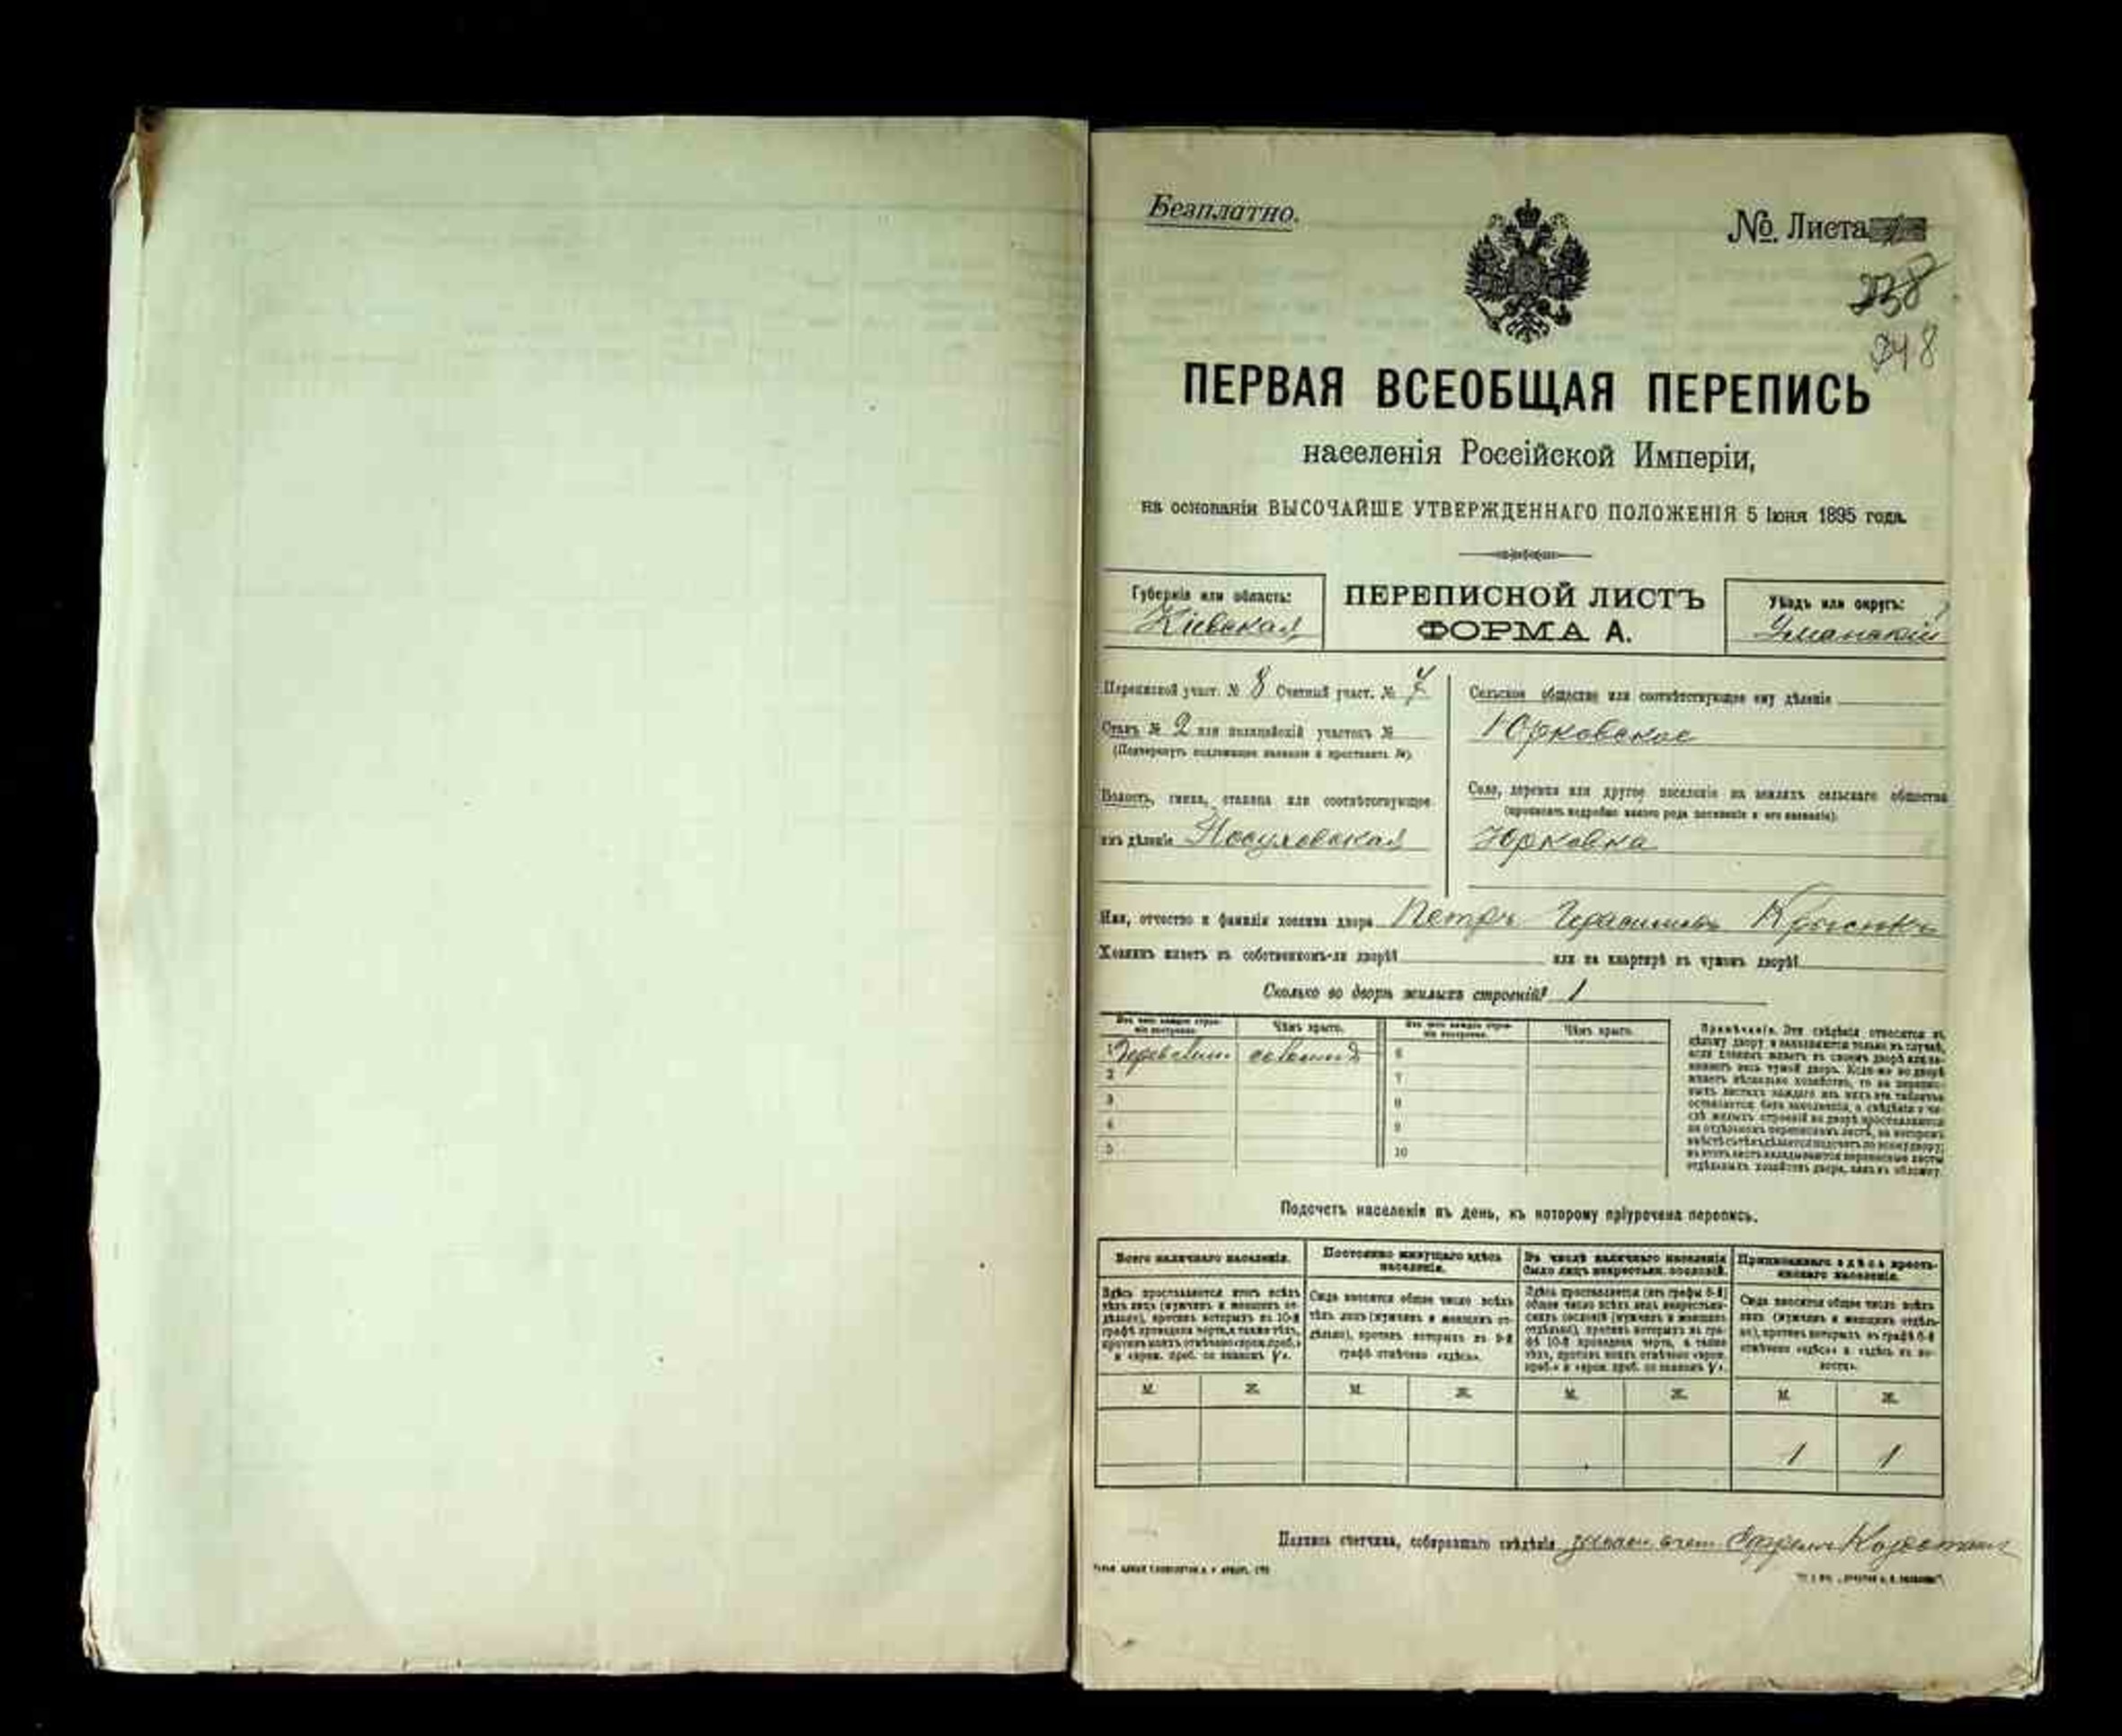 Безплатно.
№ Листа
238
348
ПЕРВАЯ ВСЕОБЩАЯ ПЕРЕПИСЬ
населенія Россійской Имперіи,
на основаніи ВЫСОЧАЙШЕ УТВЕРЖДЕННАГО ПОЛОЖЕНІЯ 5 Іюня 1895 года.
Губернія или область:
Кіевская
ПЕРЕПИСНОЙ ЛИСТЪ
ФОРМА А.
Уѣздъ или округъ:
Уманскій
Переписной участ. № 8 Счетный участ. №
Станъ № 2 или полицейскій участокъ №
(Подчеркнуть подлежащее названіе и проставить №).
Волость, гмина, станица или соотвѣтствующее
имъ дѣленіе
Сельское общество или соотвѣтствующее ему дѣленіе
Юрковское
Село, деревня или другое поселеніе на земляхъ сельскаго общества
(прописать подробно какого рода поселеніе и его названіе):
Юрковка
Имя, отчество и фамилія хозяина двора Петръ Герасимовъ
Хозяинъ живетъ въ собственномъ-ли дворѣ? или на квартирѣ въ чужомъ дворѣ?
Сколько во дворѣ жилыхъ строеній? 1
Изъ чего каждое строеніе построено. Чѣмъ крыто. Изъ чего каждое строеніе построено. Чѣмъ крыто.
1 соломой 6
2 7
3 8
4 9
5 10
Примѣчаніе. Эти свѣдѣнія относятся къ
цѣлому двору и заполняются только въ случаѣ,
если хозяинъ живетъ въ своемъ дворѣ или за-
нимаетъ весь чужой дворъ. Если-же во дворѣ
живетъ нѣсколько хозяйствъ, то на перепис-
ныхъ листахъ каждаго изъ нихъ эта табличка
остается безъ заполненія, а свѣдѣнія о чи-
слѣ жилыхъ строеній во дворѣ проставляются
на отдѣльномъ переписномъ листѣ, на которомъ
вмѣстѣ съ тѣмъ дѣлается подсчетъ по всему двору;
въ этотъ листъ вкладываются переписные листы
отдѣльныхъ хозяйствъ двора, какъ въ обложку.
Подсчетъ населенія въ день, къ которому пріурочена перепись.
Всего наличнаго населенія.
Здѣсь проставляется итогъ всѣхъ
тѣхъ лицъ (мужчинъ и женщинъ от-
дѣльно), противъ которыхъ въ 10-й
графѣ проведена черта, а также тѣхъ,
противъ коихъ отмѣчено «врем. преб.»
и «врем. преб. со знакомъ V».
Постоянно живущаго здѣсь
населенія.
Сюда вносится общее число всѣхъ
тѣхъ лицъ (мужчинъ и женщинъ от-
дѣльно), противъ которыхъ въ 9-й
графѣ отмѣчено «здѣсь».
Въ числѣ наличнаго населенія
было лицъ некрестьян. сословій.
Здѣсь проставляется (изъ графы 6-й)
общее число всѣхъ лицъ некрестьян-
скихъ сословій (мужчинъ и женщинъ
отдѣльно), противъ которыхъ въ гра-
фѣ 10-й проведена черта, а также
тѣхъ, противъ коихъ отмѣчено «врем.
преб.» и «врем. преб. со знакомъ V».
Приписаннаго здѣсь кресть-
янскаго населенія.
Сюда вносится общее число всѣхъ
лицъ (мужчинъ и женщинъ отдѣль-
но), противъ которыхъ въ графѣ 8-й
отмѣчено «здѣсь» и «здѣсь въ во-
лости».
М. Ж. М. Ж. М. Ж. М. Ж.
1 1
Подпись счетчика, собиравшаго свѣдѣнія